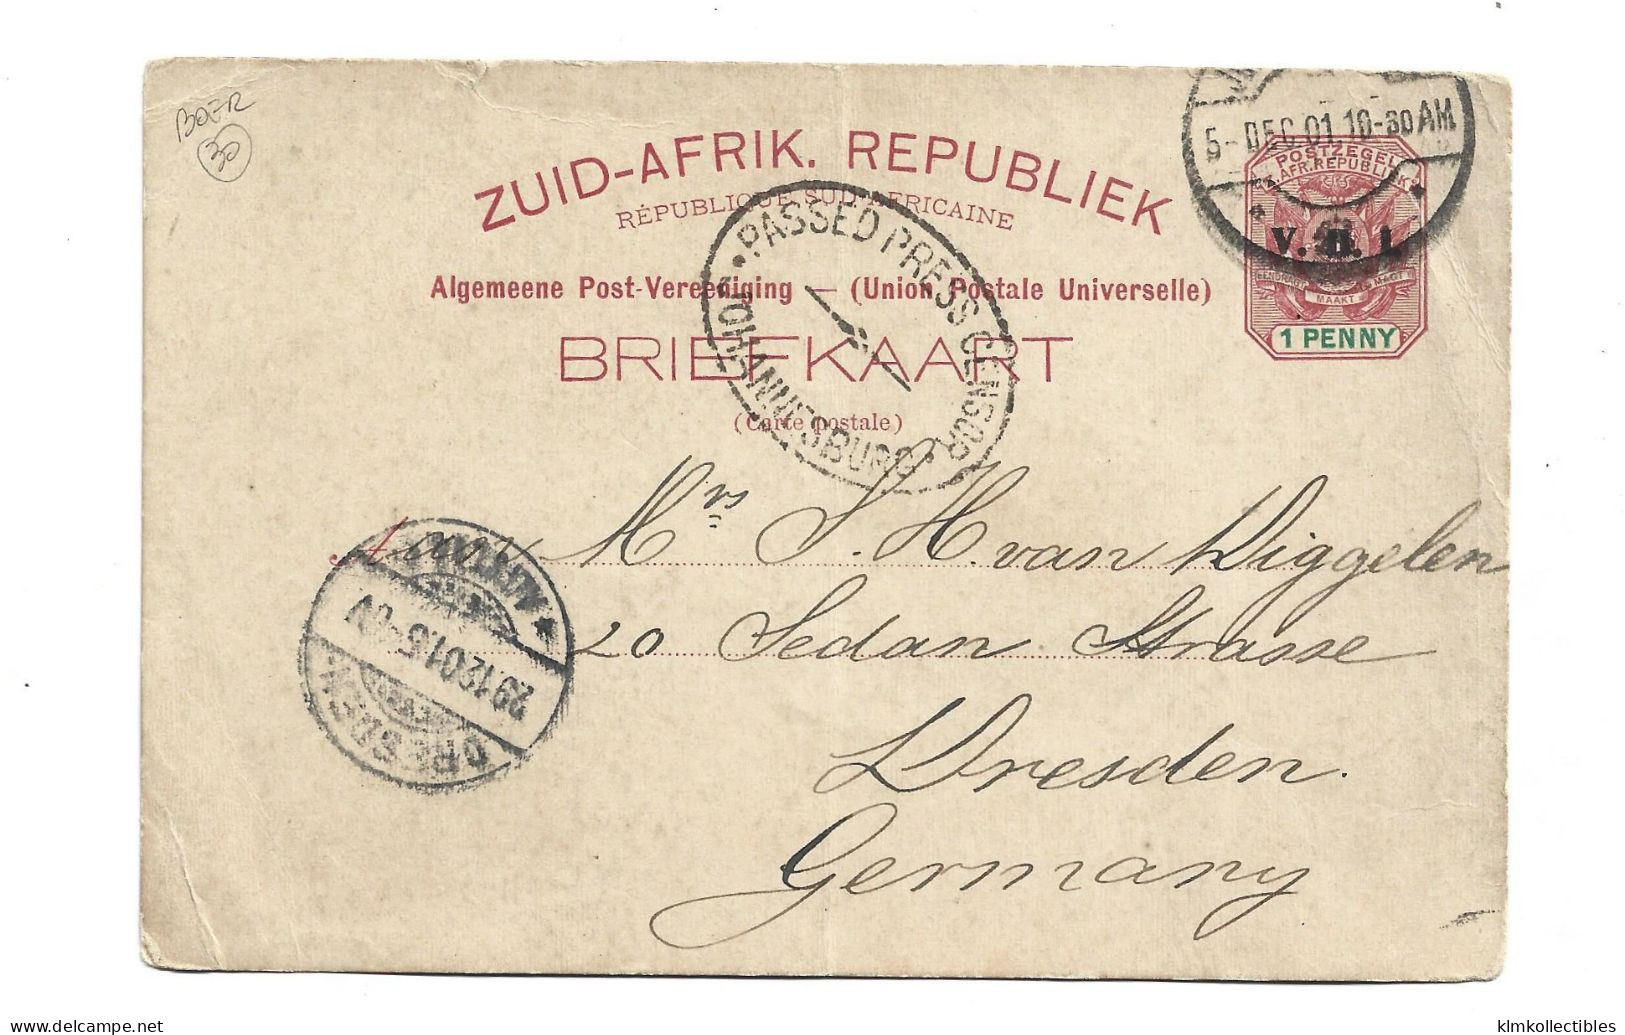 BOER
30
5-DEC.01.10-30AM
ZUID-AFRIK. REPUBLIEK
RÉPUBLIQUE SUD-AFRICAINE
POSTZEGEL
Z.AFR.REPUBLIEK
V. R. I.
EENDRAGT MAAKT MAGT
1 PENNY
Algemeene Post-Vereeniging — (Union Postale Universelle)
BRIEFKAART
(Carte postale)
PASSED PRESS CENSOR
JOHANNESBURG
Aan Mrs J. H. van Diggelen
20 Sedan Strasse
Dresden.
Germany
DRESDEN
29.12.01.5
klmkollectibles